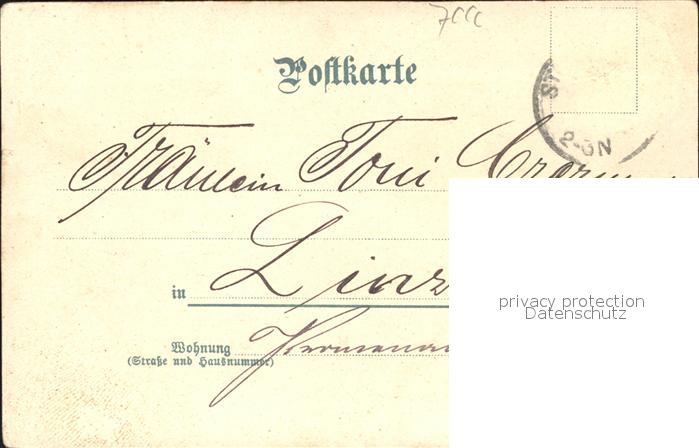 Postkarte
2-3N
Fräulein Toni
Linz
in
Wohnung
(Straße und Hausnummer)
privacy protection
Datenschutz